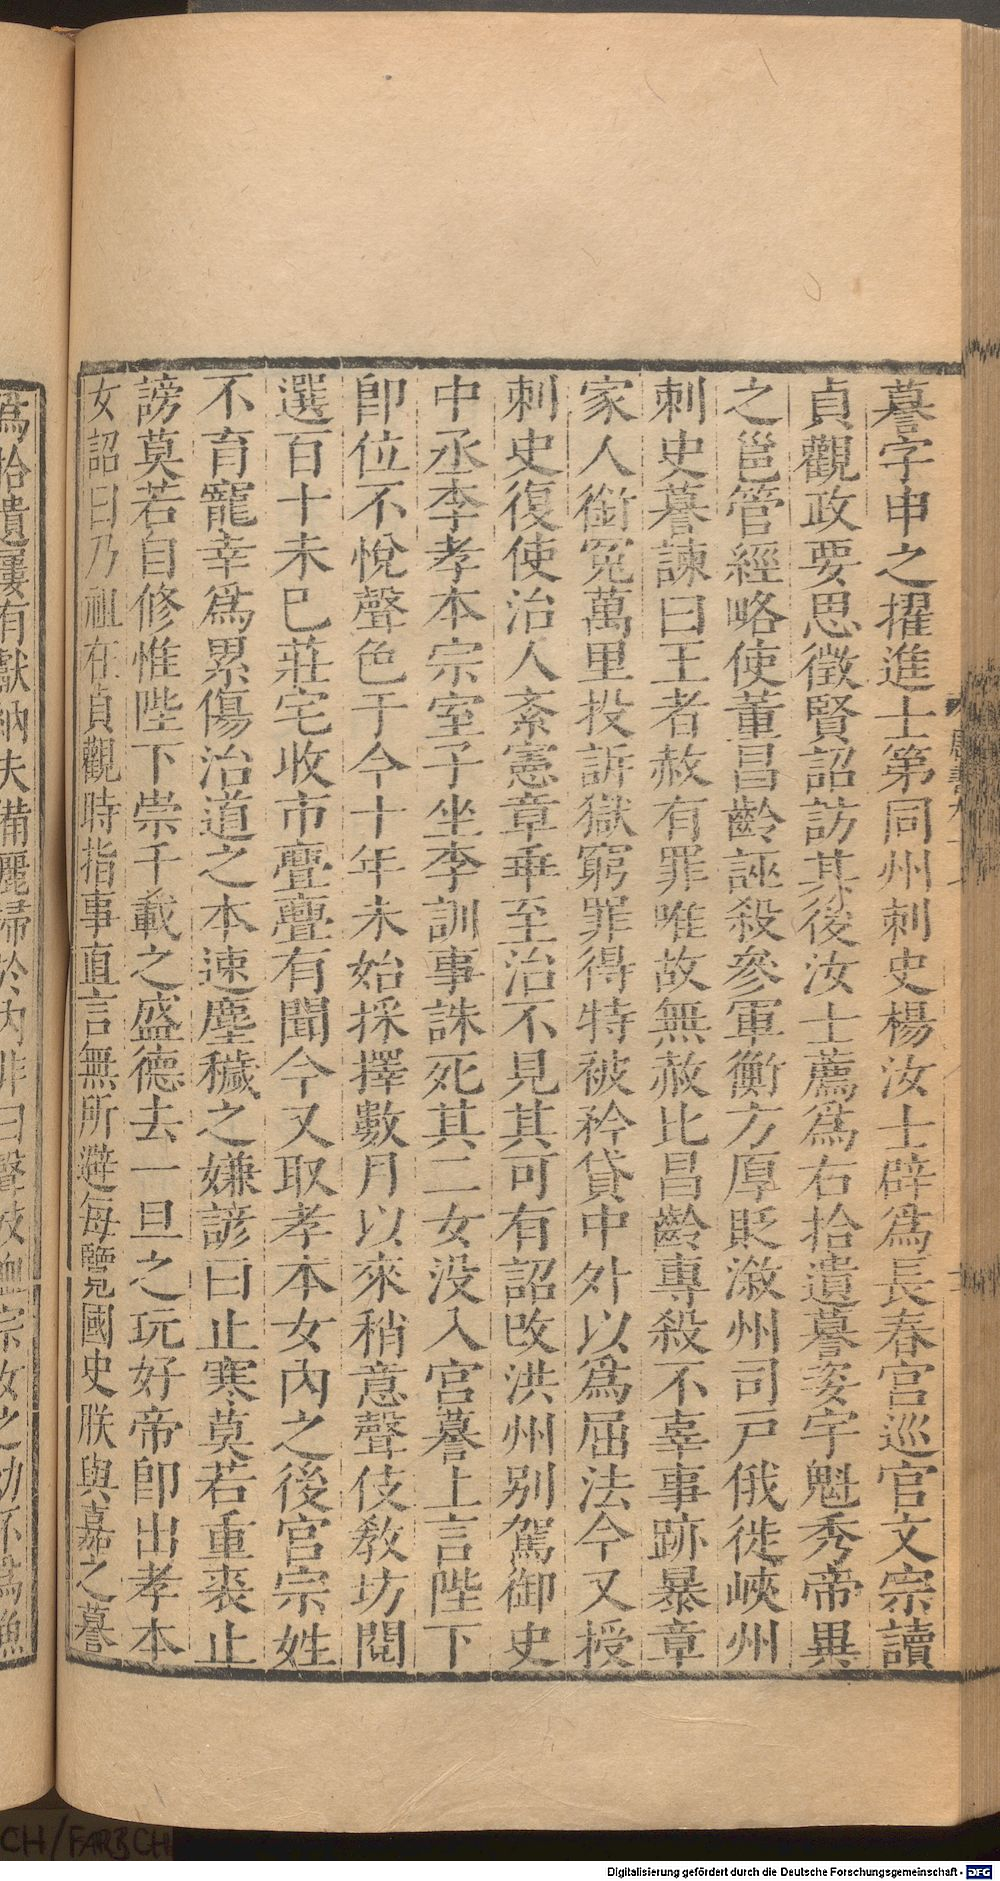 謩字申之擢進士第同州刺史楊汝士辟爲長春宮巡官文宗讀
貞觀政要思徵賢詔訪其後汝士薦爲右拾遺謩姿宇魁秀帝異
之邕管經略使董昌齡誣殺參軍衡方厚貶漵州司戸俄徙峽州
刺史謩諫曰王者赦有罪唯故無赦比昌齡專殺不辜事跡暴章
家人銜冤萬里投訴獄窮罪得特被矜貸中外以爲屈法今又授
刺史復使治人紊憲章乖至治不見其可有詔改洪州別駕御史
中丞李孝本宗室子坐李訓事誅死其二女没入宮謩上言陛下
卽位不悅聲色于今十年未始採擇數月以來稍意聲伎教坊閱
選百十未已莊宅收市亹亹有聞今又取孝本女內之後宮宗姓
不育寵幸爲累傷治道之本速塵穢之嫌諺曰止寒莫若重裘止
謗莫若自修惟陛下崇千載之盛德去一旦之玩好帝卽出孝本
女詔曰乃祖在貞觀時指事直言無所避每覽國史朕與嘉之謩
爲拾遺屢有獻納夫備灑埽於內非曰聲妓恤宗女之幼不爲漁
CH/FARBCH
Digitalisierung gefördert durch die Deutsche Forschungsgemeinschaft - DFG